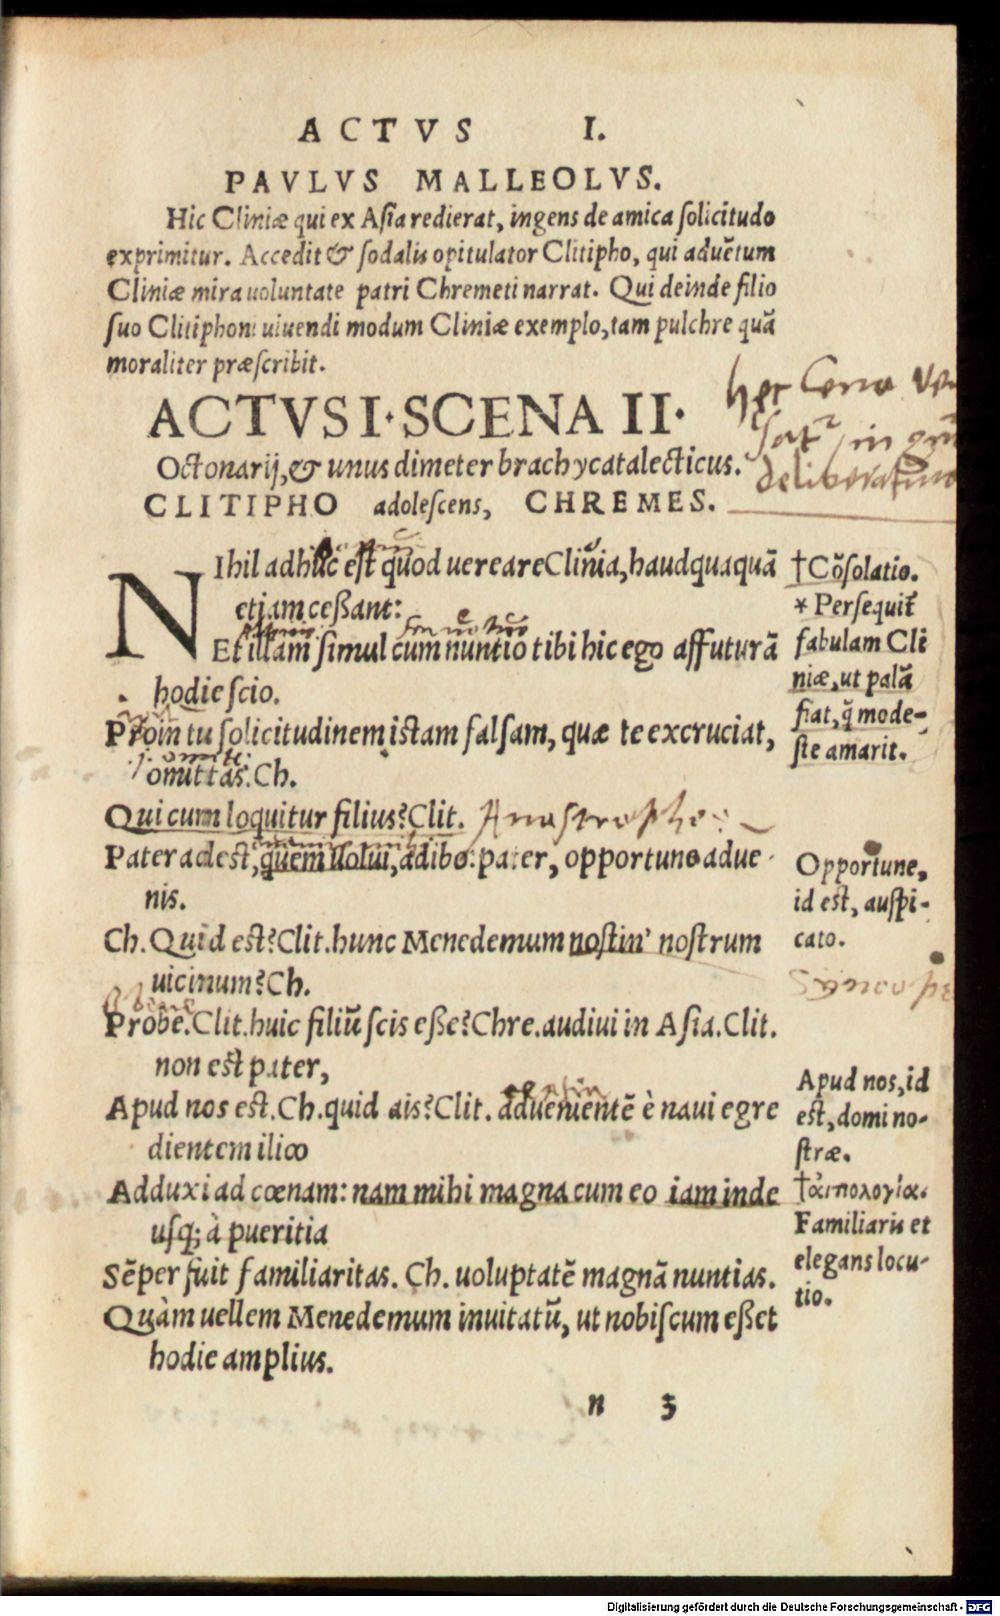 ACTVS I.
PAVLVS MALLEOLVS.
Hic Cliniæ qui ex Asia redierat, ingens de amica solicitudo
exprimitur. Accedit & sodalis opitulator Clitipho, qui aduētum
Cliniæ mira uoluntate patri Chremeti narrat. Qui deinde filio
suo Clitiphoni uiuendi modum Cliniæ exemplo, tam pulchre quā
moraliter præscribit.
ACTVS I. SCENA II.
Octonarij, & unus dimeter brachycatalecticus.
CLITIPHO adolescens, CHREMES.
hec Cena
in
deliberatiuo
NIhil adhuc est quod uereare Clinia, haudquaquā
etiam ceßant:
Et illam simul cum nuntio tibi hic ego affuturā
hodie scio.
Proin tu solicitudinem istam falsam, quæ te excruciat,
omittas. Ch.
Qui cum loquitur filius? Clit. Anastrophe
Pater adest, quem uolui, adibo: pater, opportune adue
nis.
Ch. Quid est? Clit. hunc Menedemum nostin' nostrum
uicinum? Ch.
Probe. Clit. huic filiū scis eße? Chre. audiui in Asia. Clit.
non est pater,
Apud nos est. Ch. quid ais? Clit. aduenientē è naui egre
dientem ilico
Adduxi ad cœnam: nam mihi magna cum eo iam inde
usq; à pueritia
Sēper fuit familiaritas. Ch. uoluptatē magnā nuntias.
Quàm uellem Menedemum inuitatū, ut nobiscum eßet
hodie amplius.
n 3
†Cōsolatio.
*Persequit̃
fabulam Cli
niæ, ut palā
fiat, q̃ mode-
ste amarit.
Opportune,
id est, auspi-
cato.
Syncope
Apud nos, id
est, domi no-
stræ.
†ἀπολογία.
Familiaris et
elegans locu-
tio.
Digitalisierung gefördert durch die Deutsche Forschungsgemeinschaft - DFG